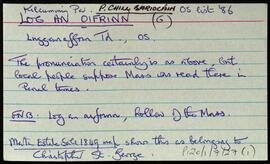 Kilcummin Par. P. CHILL BARIOCHIN OS list '86
LOG AN AIFRINN (G)
Lugganaffrin Td., OS.
The pronunciation certainly is as above, but
local people suppose Mass was read there in
Penal times.
FNB. Log an aifrinn, Hollow of the Mass.
Martin Estate Sale 1849 map show this as belonging to
Christopher St. George.